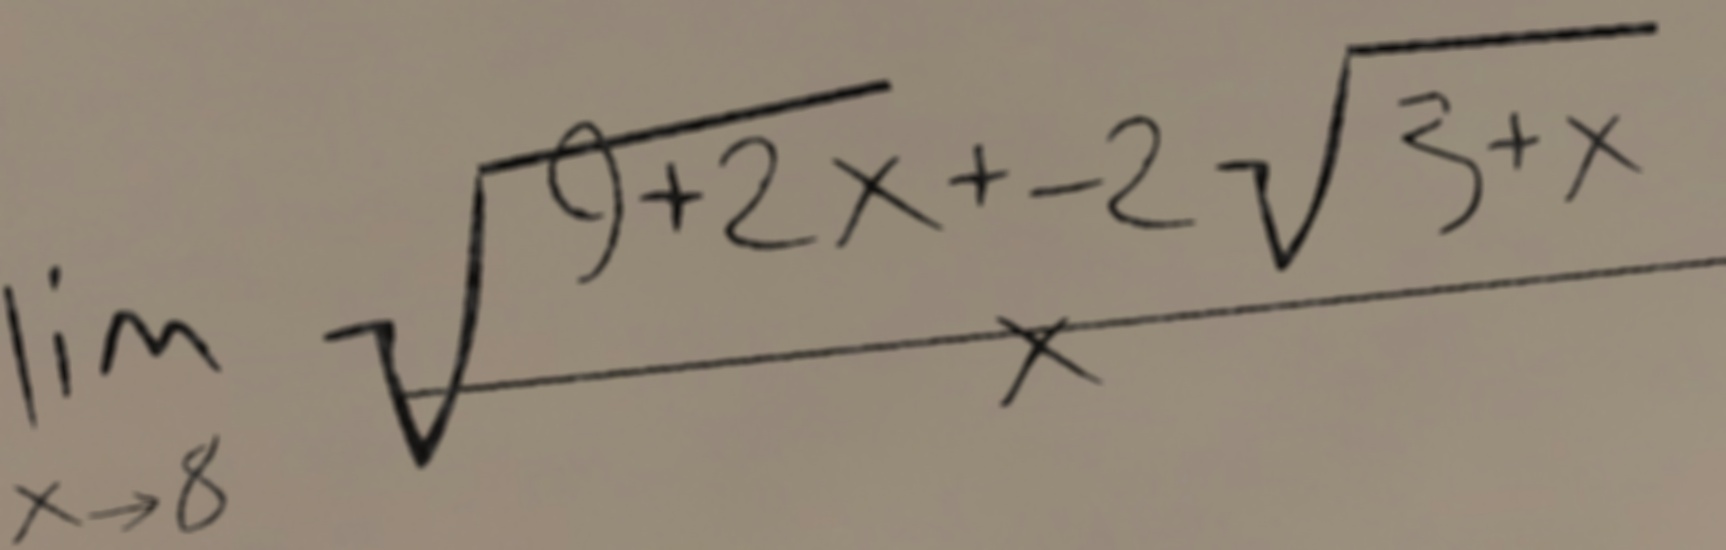 \lim_{x \to 8} \frac{\sqrt{9+2x}+-2\sqrt{3+x}}{x}